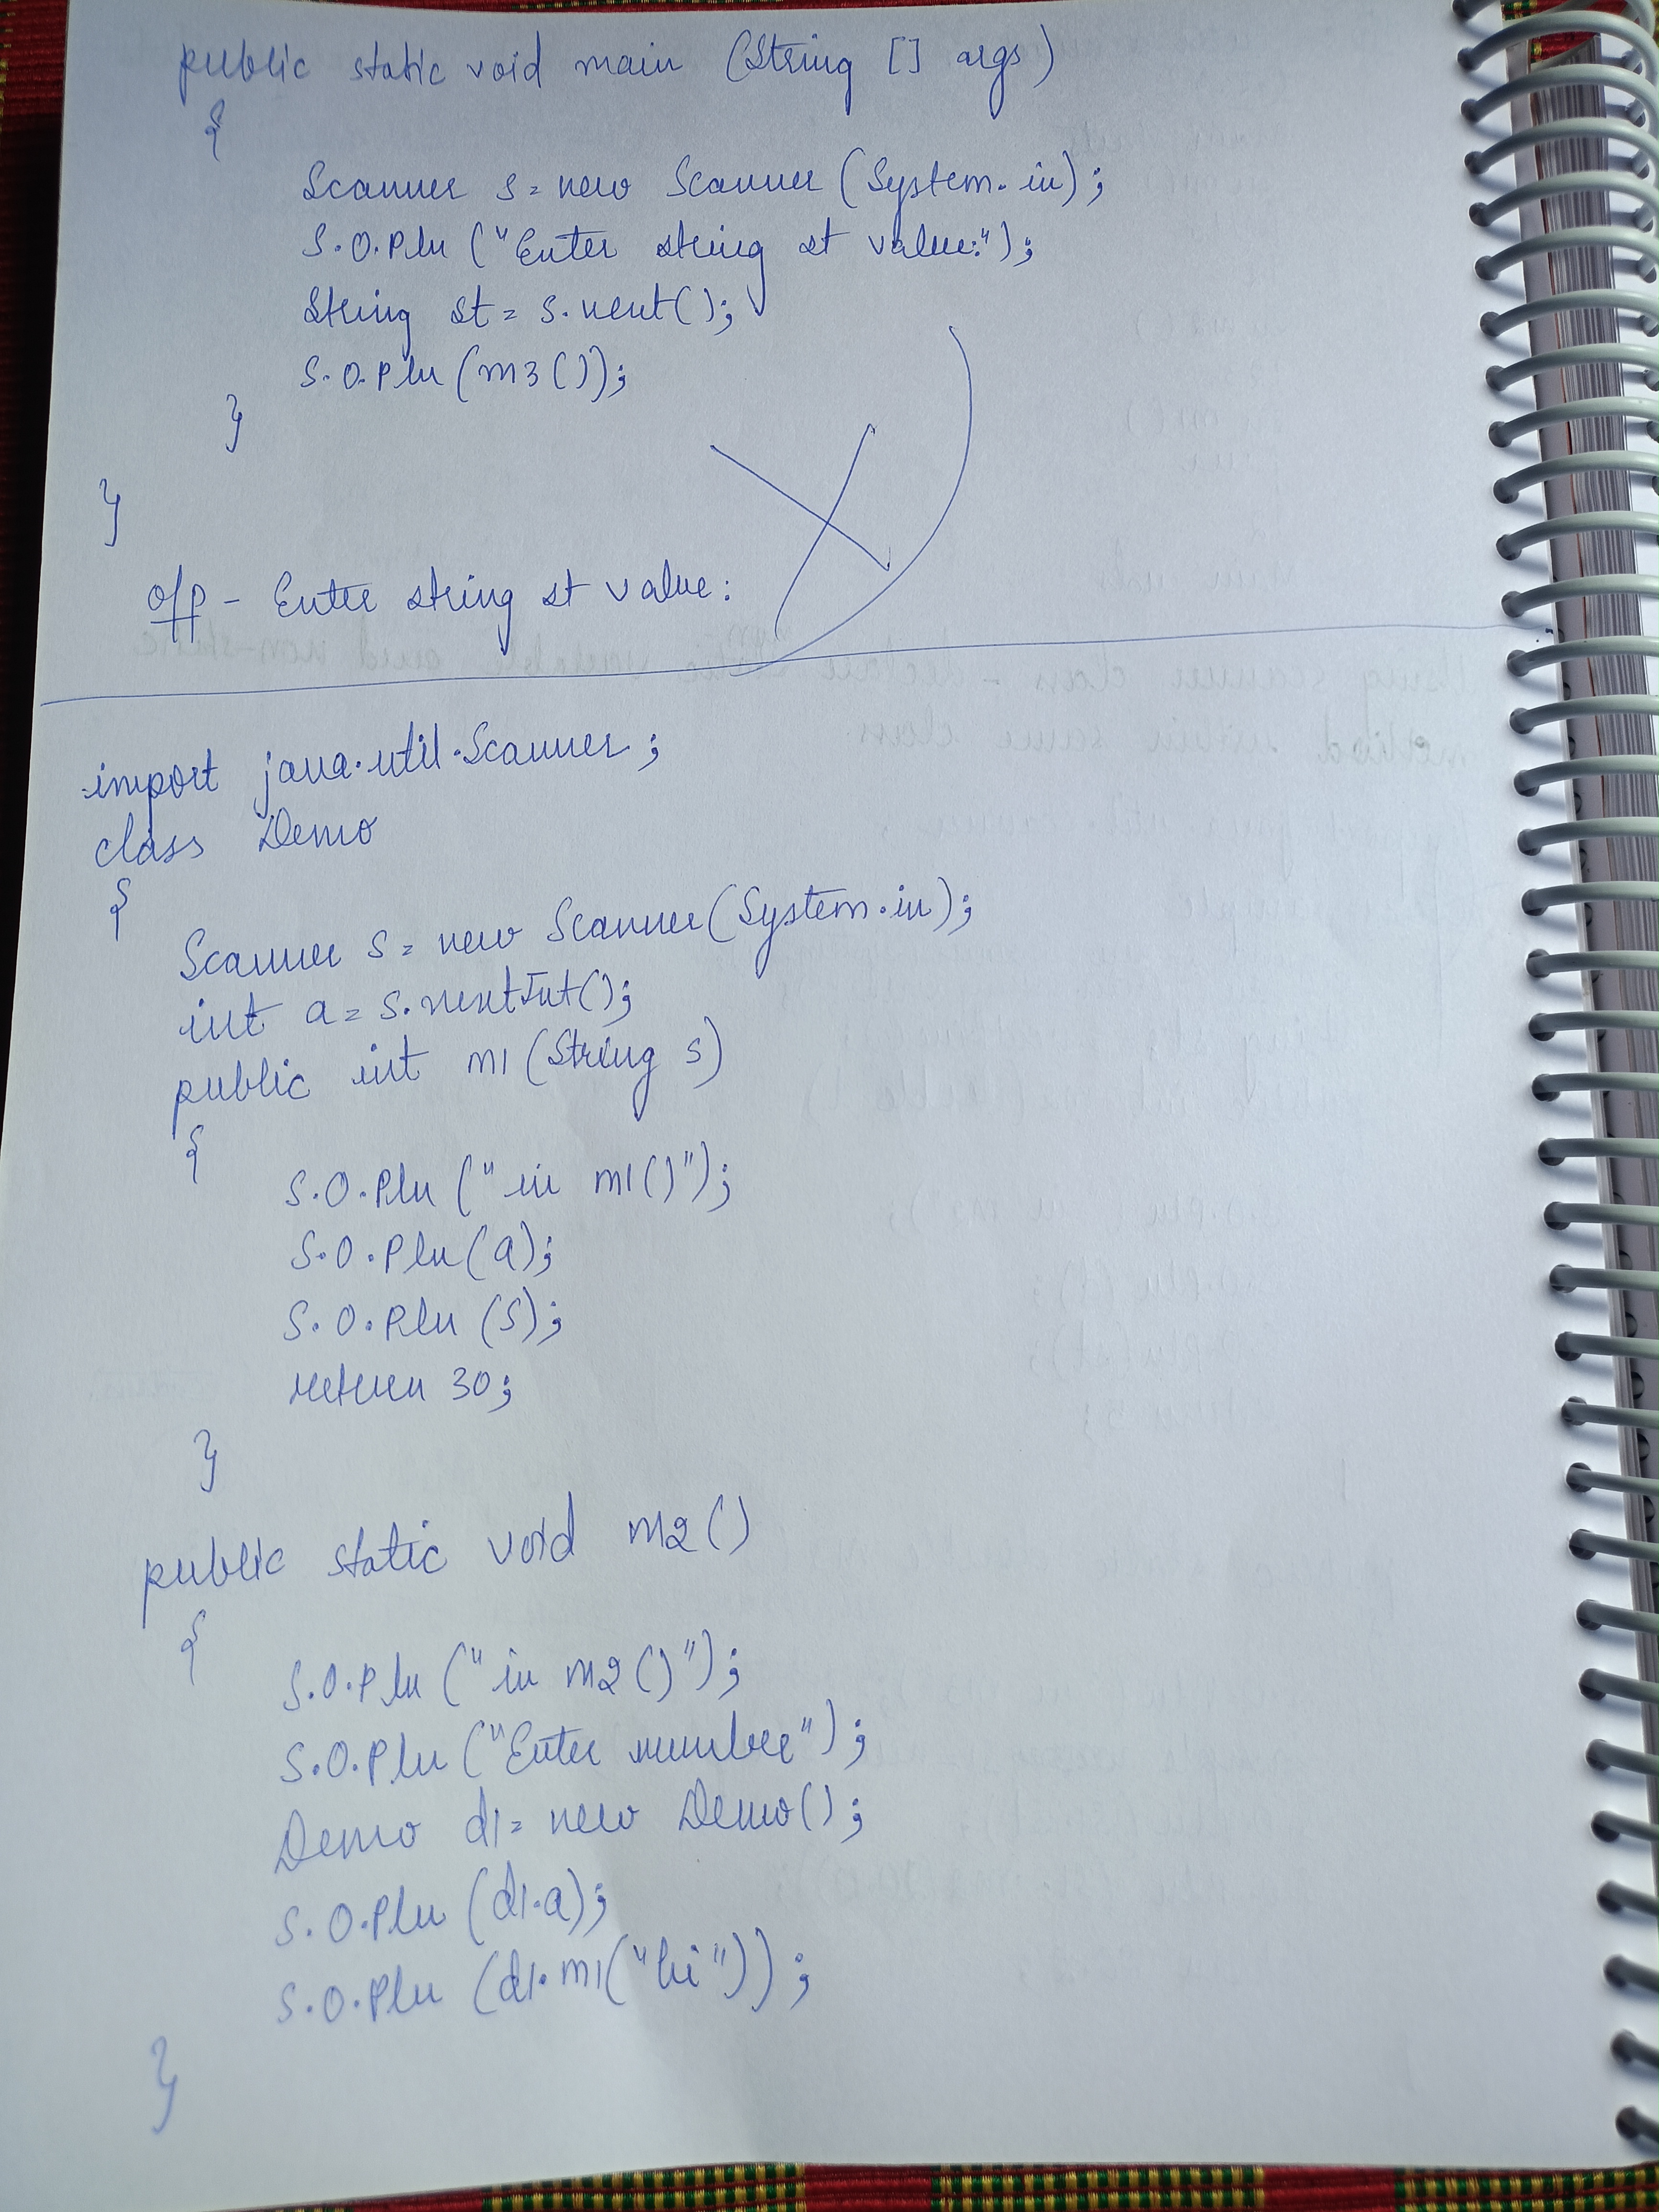 public static void main (String [] args)
{
Scanner s = new Scanner (System.in);
S.O.Pln ("Enter string st value:");
String st = s.next();
S.O.Pln (m3());
}
}
o/p - Enter string st value:
import java.util.Scanner;
class Demo
{
Scanner s = new Scanner(System.in);
int a = s.nextInt();
public int m1 (String s)
{
S.O.Pln ("in m1()");
S.O.Pln (a);
S.O.Pln (s);
return 30;
}
public static void m2()
{
S.O.Pln ("in m2()");
S.O.Pln ("Enter number");
Demo d1 = new Demo();
S.O.Pln (d1.a);
S.O.Pln (d1.m1("hi"));
}